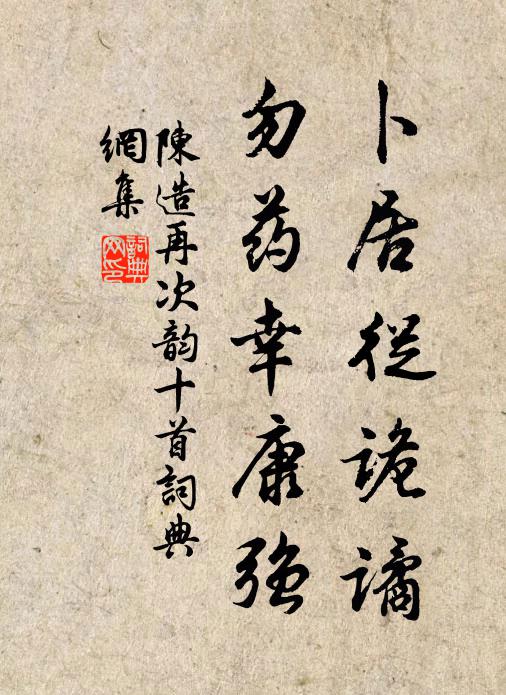 卜居從詭譎
勿药幸康強
陳造再次韵十首詞典
網集
詞典
网印